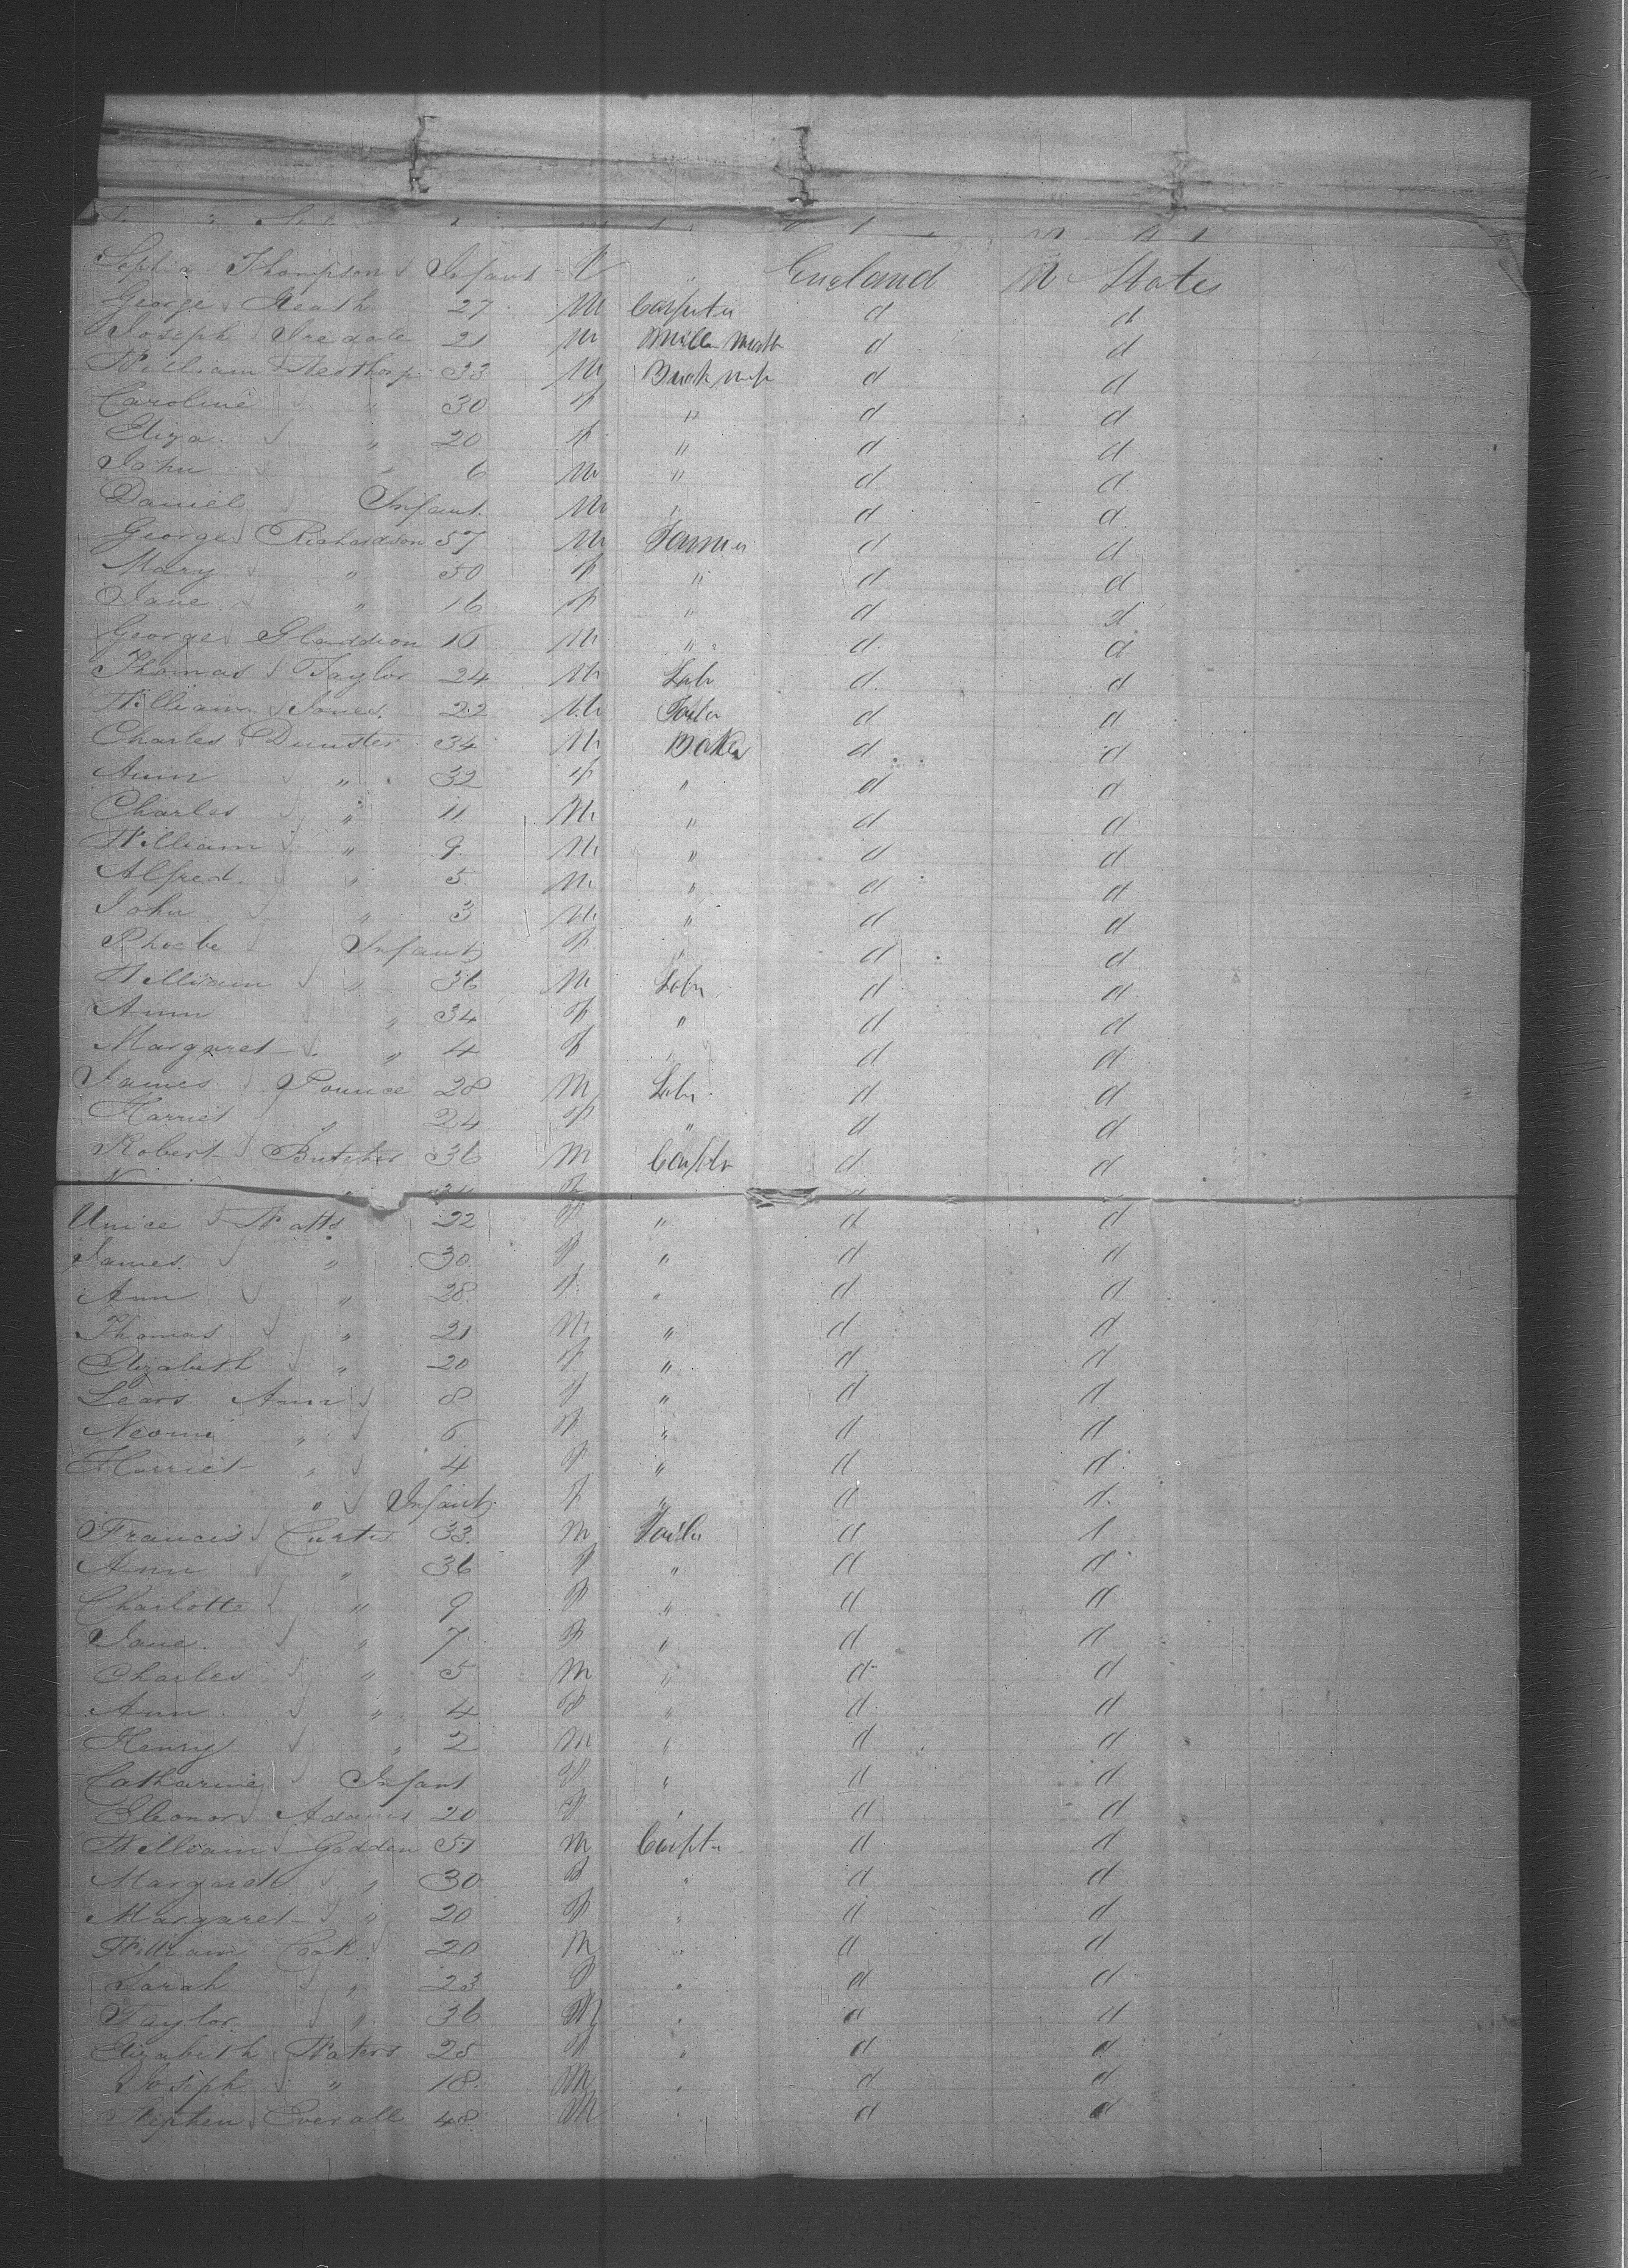 Sophia Thompson Infant F " England U States
George Heath 27 M Carpenter d d
Joseph Iredale 21 M Miller d d
William Westhorp 33 M Brick d d
Caroline " 30 F " d d
Eliza " 20 F " d d
John " 6 M " d d
Daniel Infant M " d d
George Richardson 57 M Farmer d d
Mary " 50 F " d d
Jane " 16 F " d d
George 16 M " d d
Thomas Taylor 24 M Labr d d
William Jones 22 M Tailor d d
Charles Dunster 34 M Baker d d
Ann " 32 F " d d
Charles " 11 M " d d
William " 9 M " d d
Alfred " 5 M " d d
John " 3 M " d d
Phoebe Infant F " d d
William " 36 M Labr d d
Ann " 34 F " d d
Margaret " 4 F " d d
James Pounce 28 M Labr d d
Harriet " 24 F " d d
Robert Butcher 36 M Carptr d d
Unice Watts 22 F " d d
James " 30 F " d d
Ann " 28 F " d d
Thomas " 21 M " d d
Elizabeth " 20 F " d d
Lears Ann 8 F " d d
Neomi " 6 F " d d
Harriet " 4 F " d d
" Infant F " d d
Francis Curtis 33 M Tailor d d
Ann " 36 F " d d
Charlotte " 9 F " d d
Jane " 7 F " d d
Charles " 5 M " d d
Ann " 4 F " d d
Henry " 2 M " d d
Catharine Infant F " d d
Eleonor Adams 20 F " d d
William Godden 51 M Carptr d d
Margaret " 30 F " d d
Margaret " 20 F " d d
William Cook 20 M " d d
Sarah " 23 F " d d
Taylor " 36 M " d d
Elizabeth Waters 25 F " d d
Joseph " 18 M " d d
Stephen Everall 48 M " d d